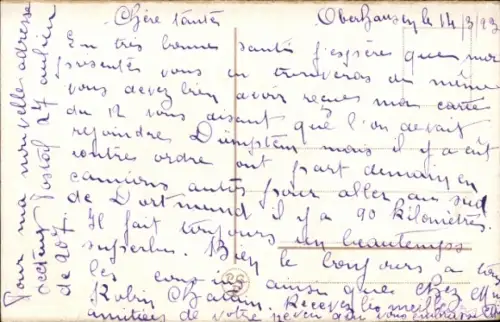 Oberhausen le 14/3/23
Chère tante
En très bonne santé j'espère que ma
présente vous en trouveras de même
vous devez bien avoir reçues ma carte
du 12 vous disant que l'on devait
rejoindre Dümpten mais il y a eût
contre ordre ont part demain en
camions autos pour aller au sud
de Dortmund il y a 90 kilomètres.
Il fait toujours un beautemps
superbe. Bien le bonjours a
les ainsi que chez
Robin Recevez les meilleures
amitiés de votre neveu qui vous
Pour ma nouvelle adresse
secteur Postal 27 au lien
de 207.